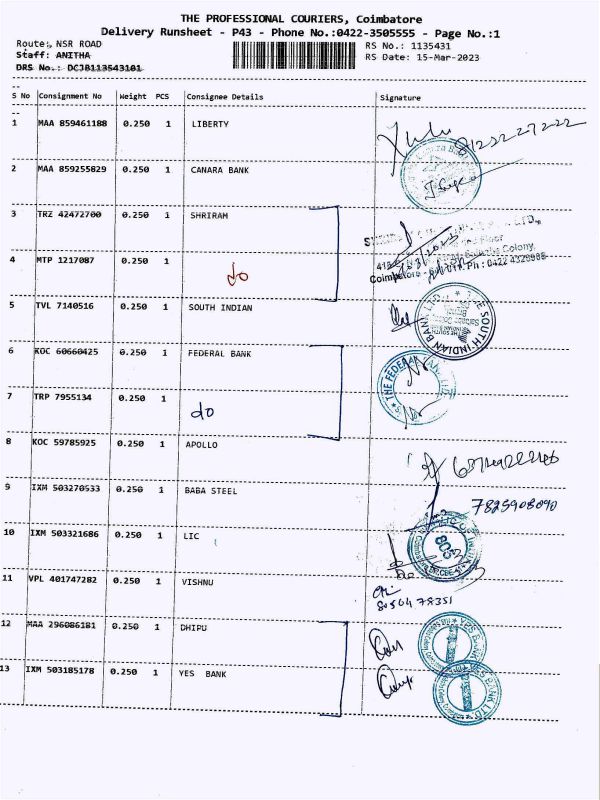 THE PROFESSIONAL COURIERS, Coimbatore
Delivery Runsheet - P43 - Phone No.:0422-3505555 - Page No.:1
Route: NSR ROAD
RS No.: 1135431
Staff: ANITHA
RS Date: 15-Mar-2023
DRS No.: DCJB113543101
S No Consignment No Weight PCS Consignee Details Signature
1 MAA 859461188 0.250 1 LIBERTY
2 MAA 859255829 0.250 1 CANARA BANK
3 TRZ 42472700 0.250 1 SHRIRAM
4 MTP 1217087 0.250 1 do
Colony,
Coimbatore Ph : 0422 4328985
5 TVL 7140516 0.250 1 SOUTH INDIAN
THE SOUTH INDIAN BANK LTD
6 KOC 60660425 0.250 1 FEDERAL BANK
THE FEDERAL BANK LTD
7 TRP 7955134 0.250 1 do
8 KOC 59785925 0.250 1 APOLLO
9 IXM 503270533 0.250 1 BABA STEEL
7825908090
10 IXM 503321686 0.250 1 LIC
803
11 VPL 401747282 0.250 1 VISHNU
12 MAA 296086181 0.250 1 DHIPU
YES BANK
13 IXM 503185178 0.250 1 YES BANK
YES BANK LTD